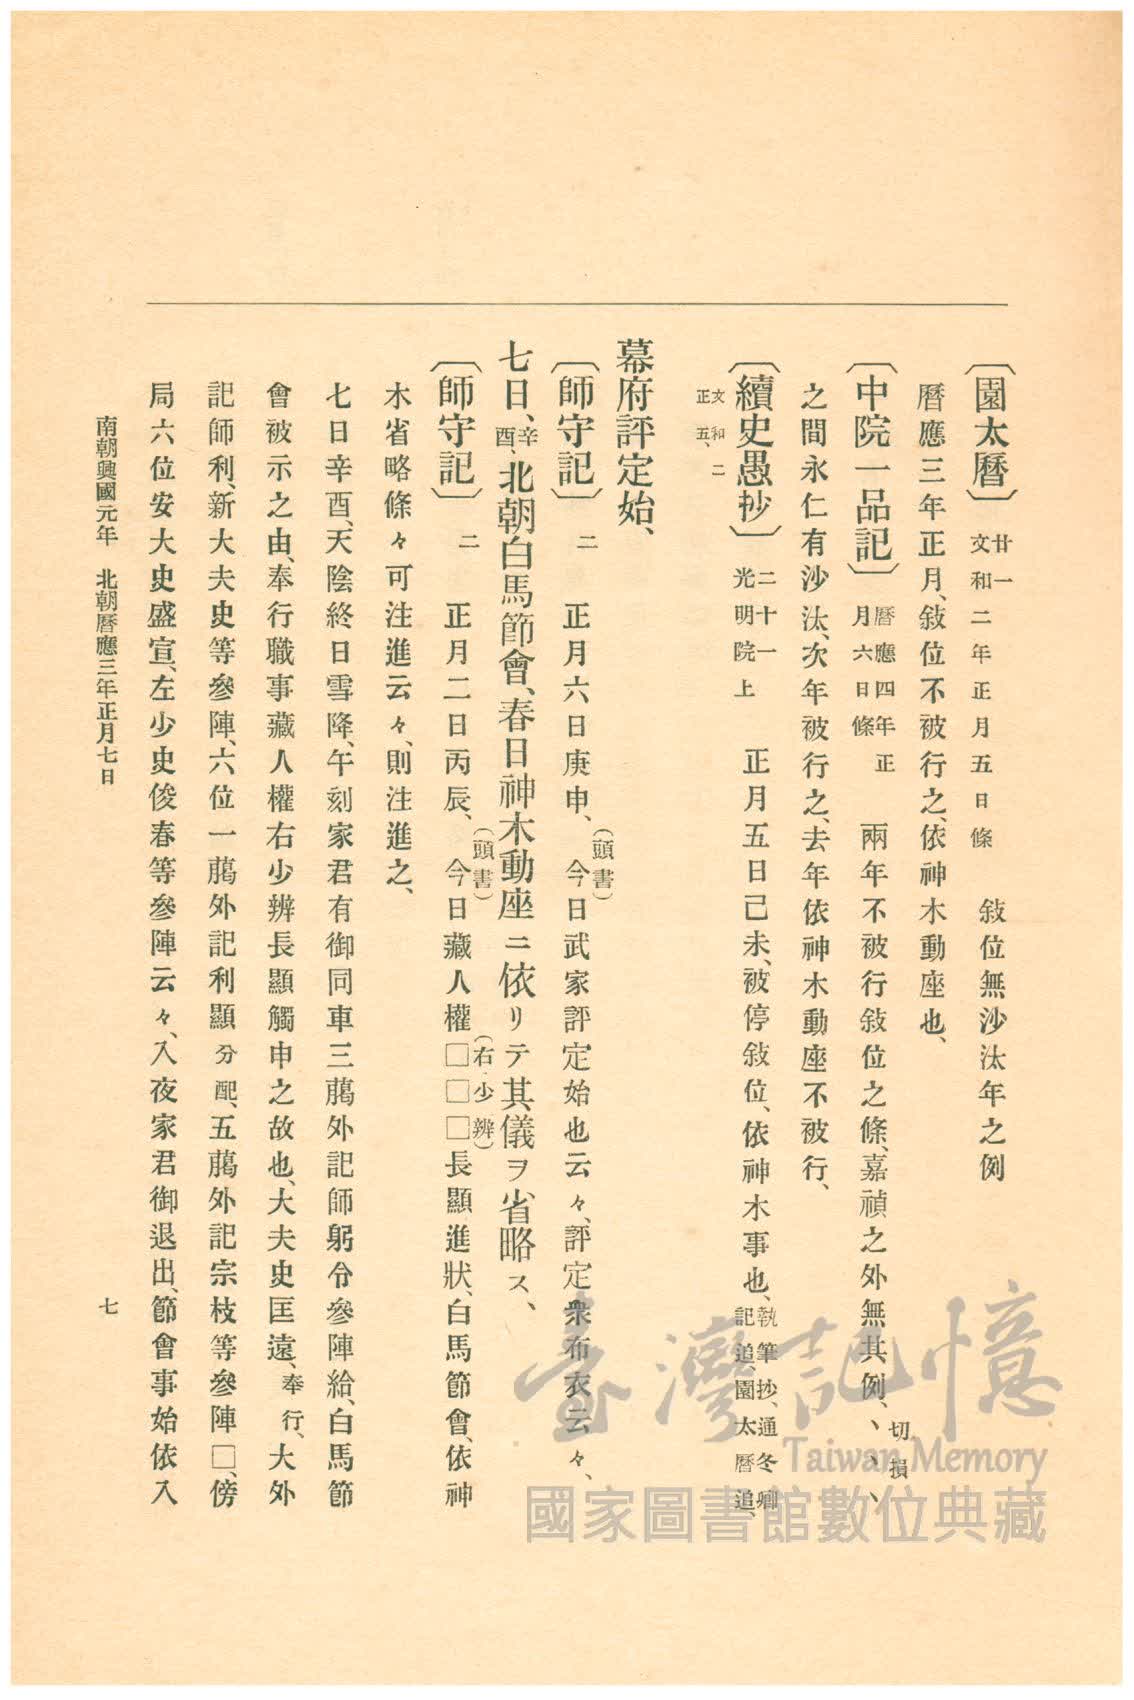 〔園太曆〕廿一 文和二年正月五日條 敍位無沙汰年之例
曆應三年正月、敍位不被行之、依神木動座也、
〔中院一品記〕曆應四年正月六日條 兩年不被行敍位之條、嘉禎之外無其例、、、、切損
之間永仁有沙汰、次年被行之、去年依神木動座不被行、
〔續史愚抄〕二十一 光明院上 正月五日己未、被停敍位、依神木事也、執筆抄、通冬卿記追、園太曆追、
文和二正五、
幕府評定始、
〔師守記〕二 正月六日庚申、(頭書)今日武家評定始也云々、評定衆布衣云々、
七日、辛酉、北朝白馬節會、春日神木動座ニ依リテ其儀ヲ省略ス、
〔師守記〕二 正月二日丙辰、(頭書)今日藏人權□□□(右少辨)長顯進狀、白馬節會、依神
木省略條々可注進云々、則注進之、
七日辛酉、天陰終日雪降、午刻家君有御同車三﨟外記師躬令參陣給、白馬節
會被示之由、奉行職事藏人權右少辨長顯觸申之故也、大夫史匡遠、奉行、大外
記師利、新大夫史等參陣、六位一﨟外記利顯分配、五﨟外記宗枝等參陣□、傍
局六位安大史盛宣、左少史俊春等參陣云々、入夜家君御退出、節會事始依入
南朝興國元年 北朝曆應三年正月七日
七
臺灣記憶
Taiwan Memory
國家圖書館數位典藏